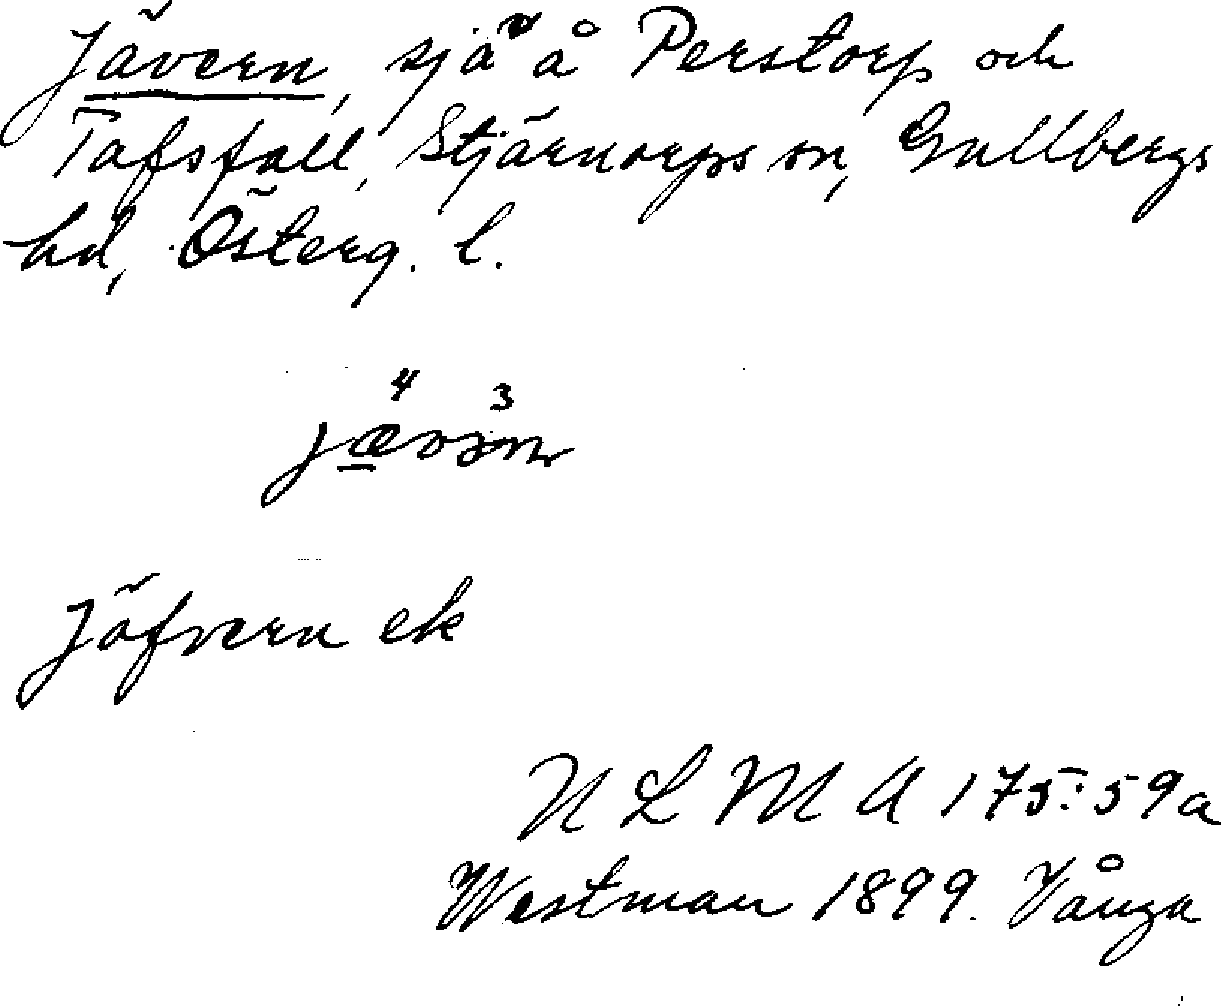 Jävern, sjö å Perstorp och
Tafsfall, Stjärnorps sn, Gullbergs
hd, Österg. l.
4 3
Jäfvern ek
ULMA 175:59a
Westman 1899. Vånga